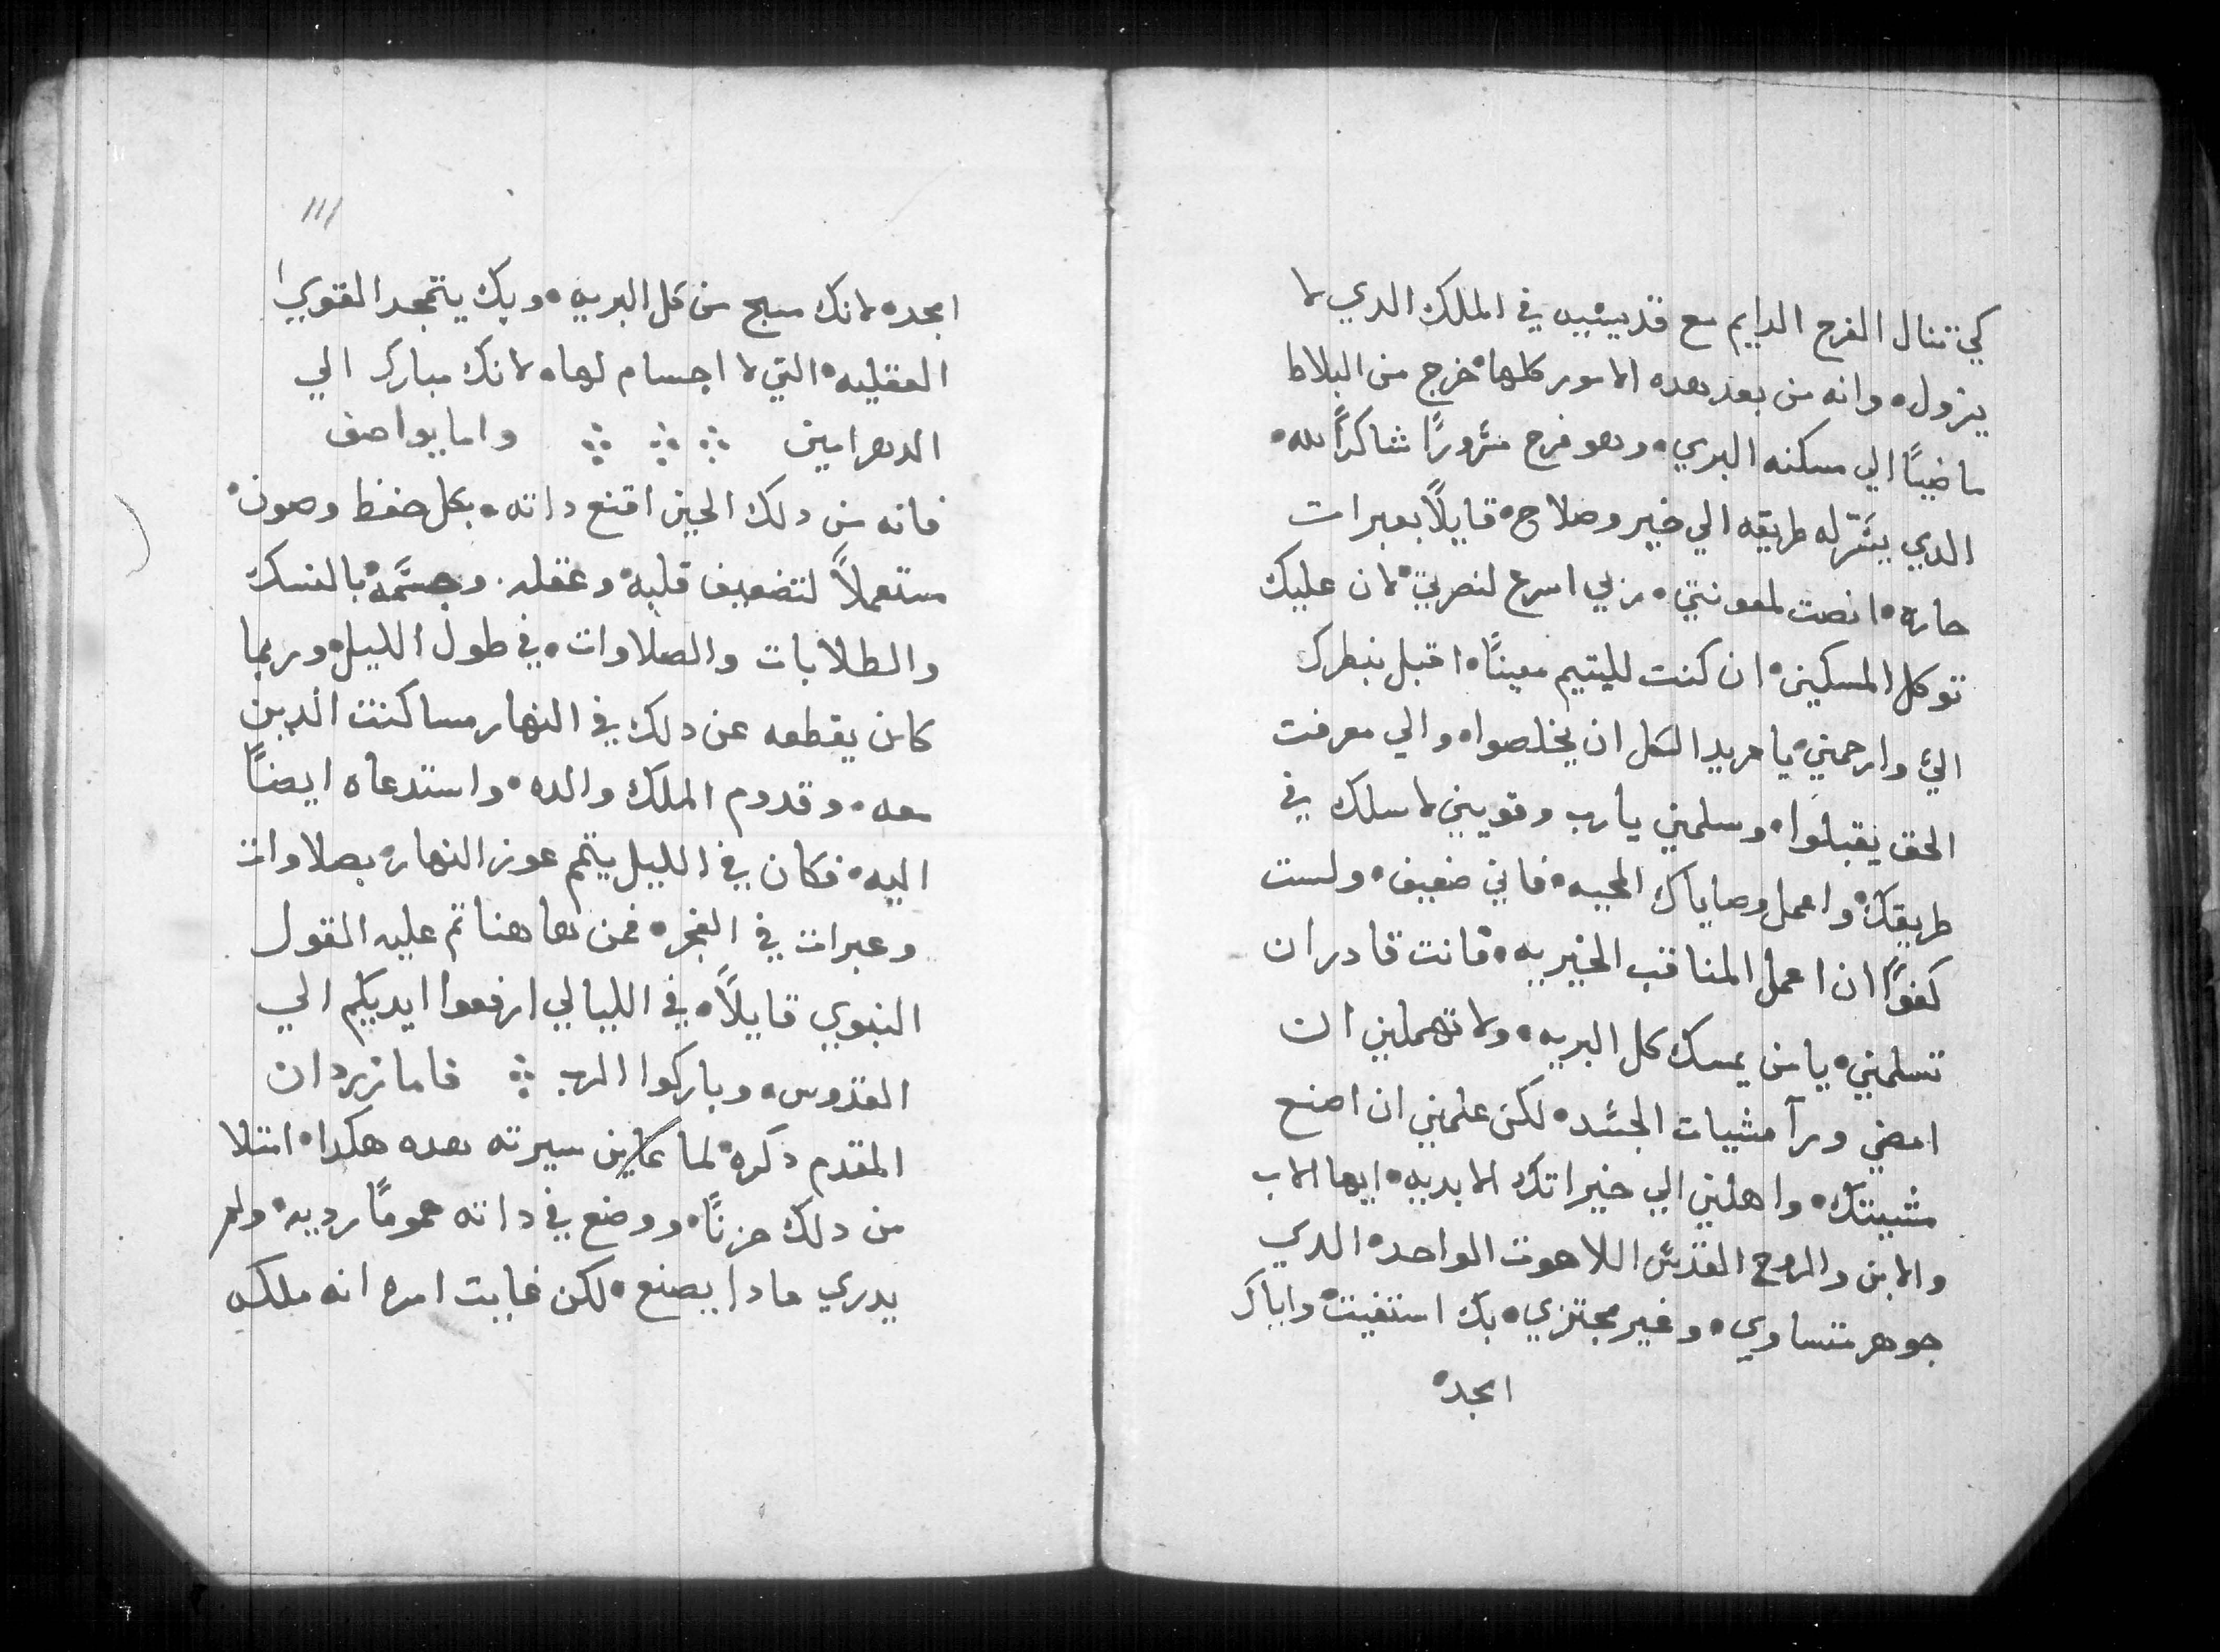 كي تنال الفرح الدايم مع قديسيه في الملك الدي لا
يزول• وانه من بعد هده الامور كلها• خرج من البلاط
ماضيًا الي مسكنه البري• وهو فرح مسرورًا شاكرًا لله•
الدي يسر له طريقه الي خير وصلاح• قايلًا بعبرات
حاره• انصت لمعونتي• ربي اسرع لنصرتي• لان عليك
توكل المسكين• ان كنت لليتيم معينًا• اقبل بنظرك
الي وارحمني• يا مريد الكل ان يخلصوا• والي معرفت
الحق يقبلوا• وسلمني يا رب وقويني لاسلك في
طريقك• واعمل وصاياك المحييه• فاني ضعيف• ولست
كفوًا ان اعمل المناقب الخيريه• فانت قادر ان
تسلمني• يا من يمسك كل البريه• ولا تهملني ان
امضي ورآ مشيات الجسد• لكن علمني ان اصنع
مشيتك• واهلني الي خيراتك الابديه• ايها الاب
والابن والروح القدس اللاهوت الواحد• الدي
جوهر متساوي• وغير مجتزي• بك استغيت• واياك
امجد•
111
امجد• لانك مسبح من كل البريه• وبك يتمجد القوي
العقليه• التي لا اجسام لها• لانك مبارك الي
الدهر امين ∴ ∴ ∴ واما يواصف
فانه من دلك الحين اقنع داته• بكل حفظ وصون•
مستعملًا لتضعيف قلبه• وعقله• وجسمه• بالنسك
والطلابات والصلاوات• في طول الليل• وربما
كان يقطعه عن دلك في النهار مساكنت الدين
معه• وقدوم الملك والده• واستدعاه ايضًا
اليه• فكان في الليل يتمم عوز النهار• بصلاوات
وعبرات في الفجر• فمن هاهنا تم عليه القول
النبوي قايلًا• في الليالي ارفعوا ايديكم الي
القدوس• وباركوا الرب ∴ فاما زردان
المقدم دكره• لما عاين سيرته هده هكدا• امتلا
من دلك حزنًا• ووضع في داته همومًا رديه• ولم
يدري مادا يصنع• لكن غايت امره انه ملكه